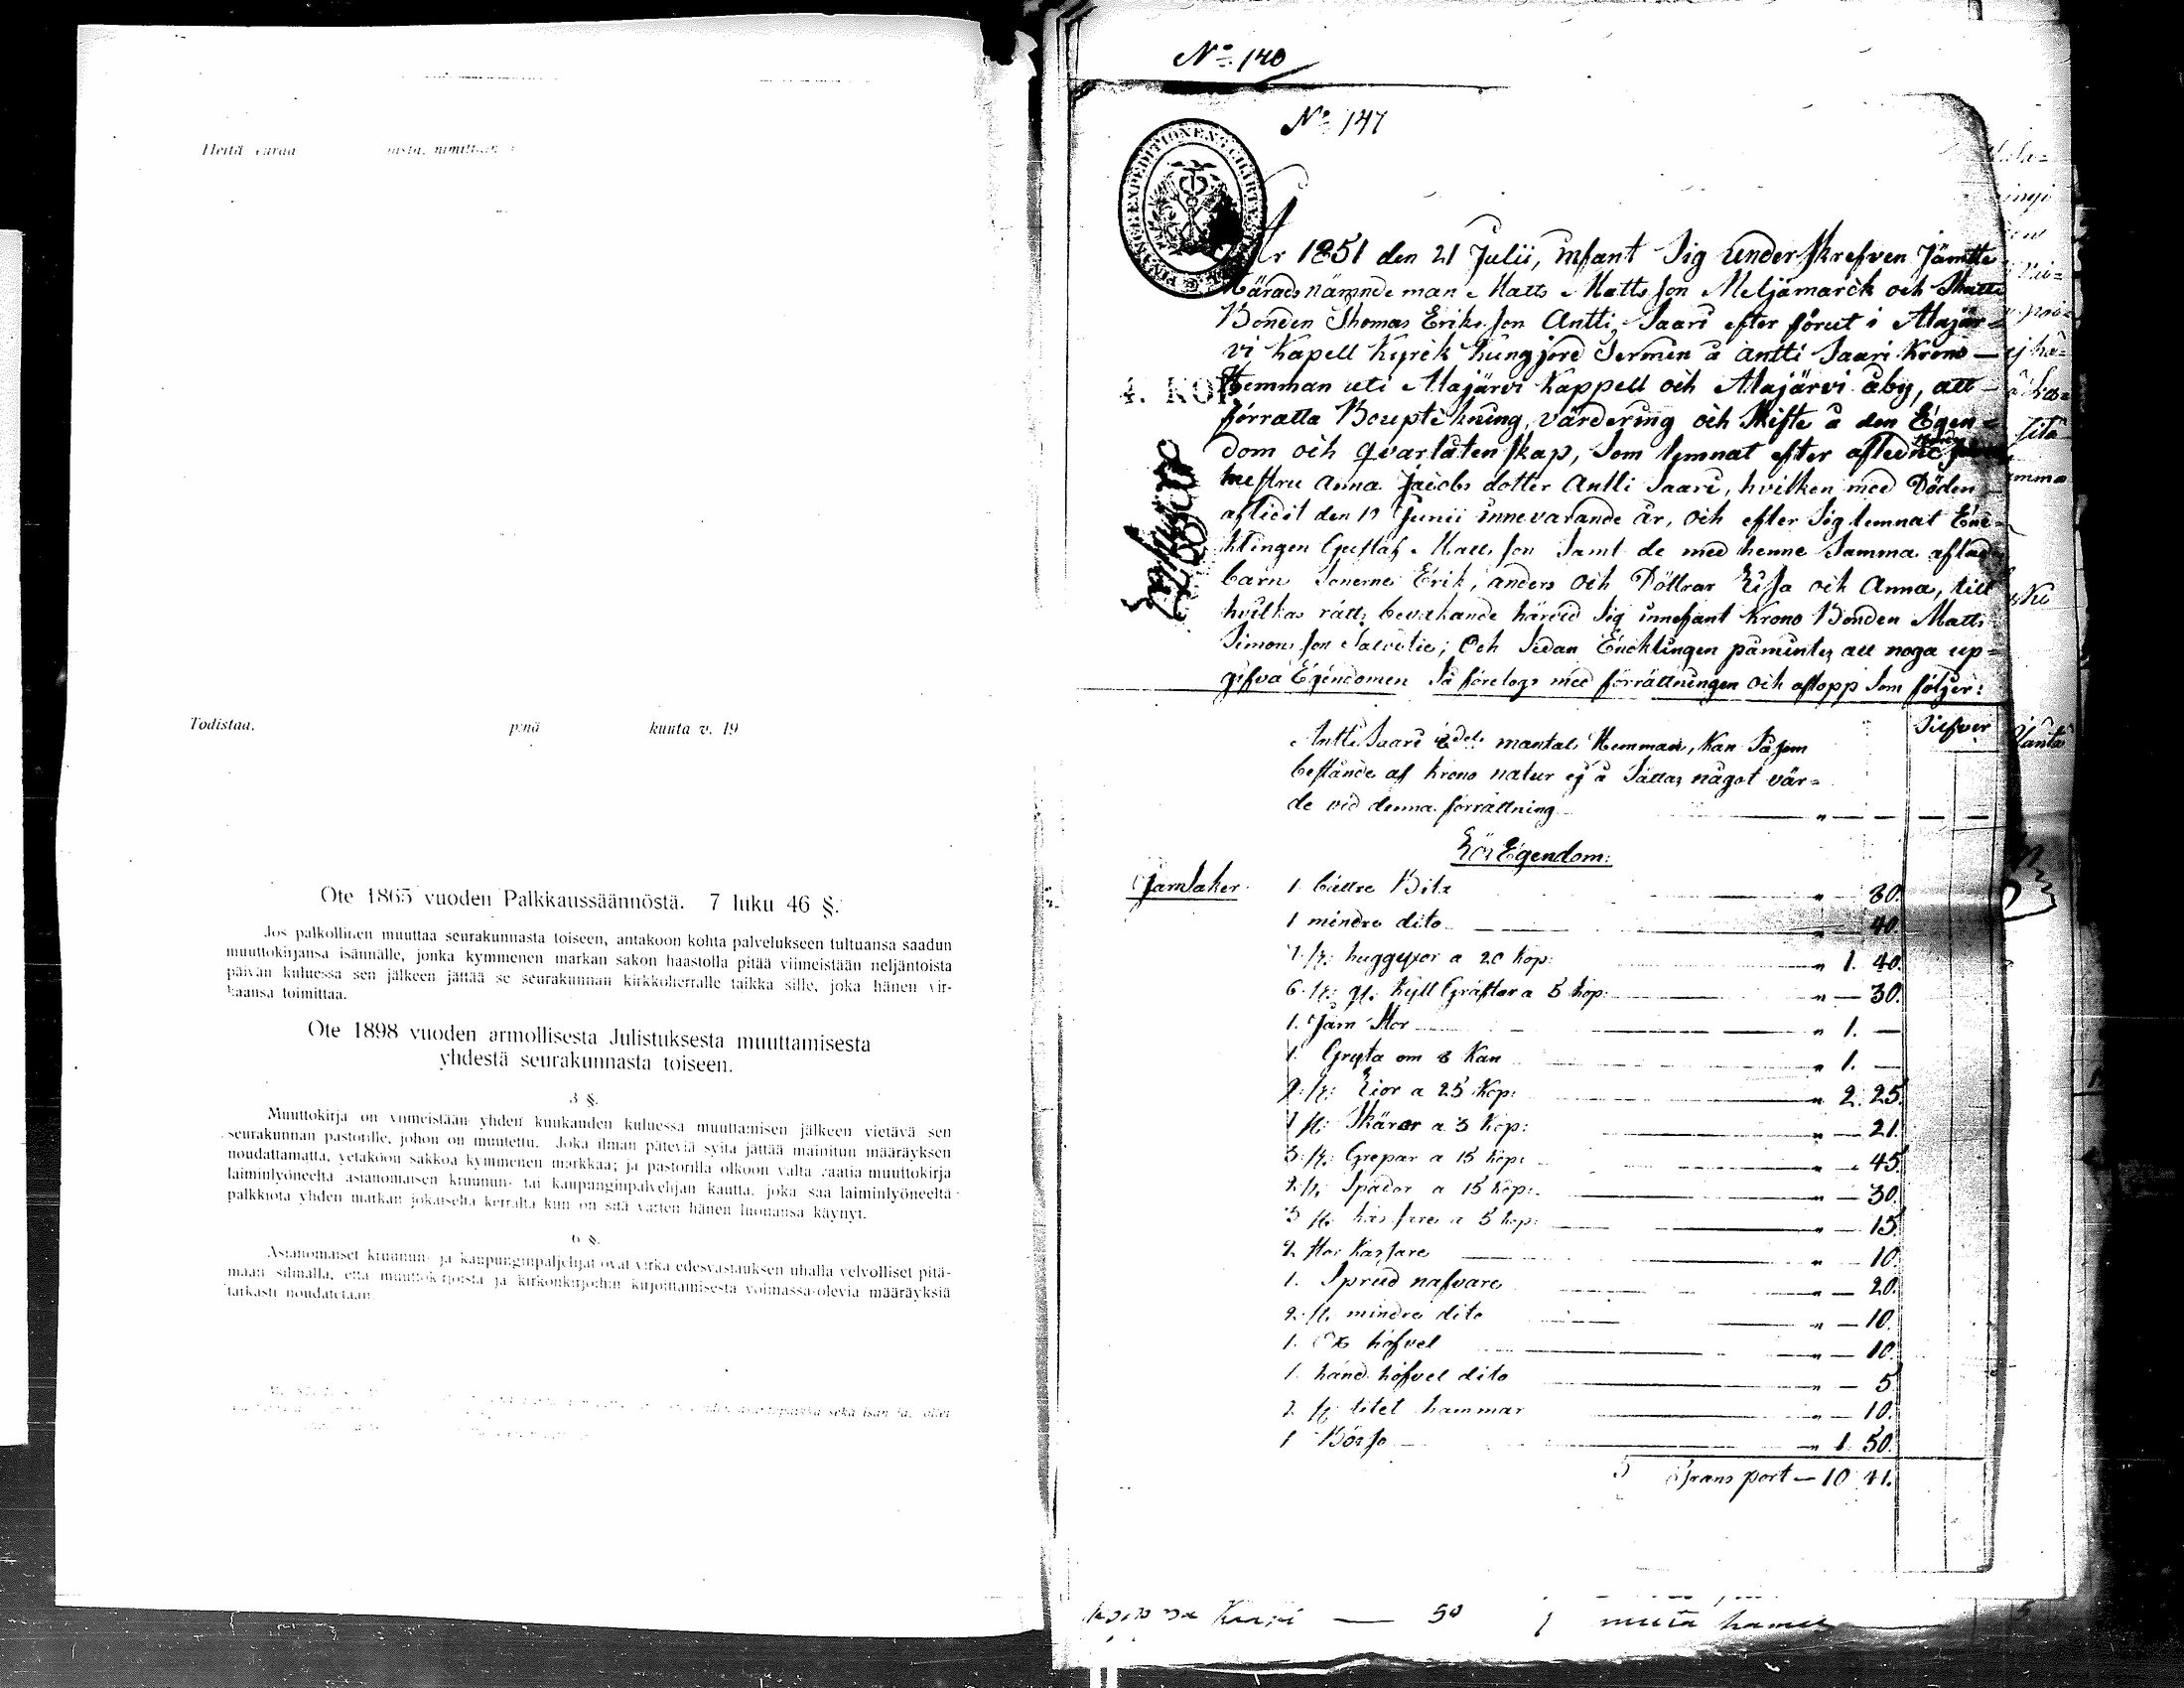 Heitä
nimittäin
Todistaa.
p:nä kuuta v. 19
Ote 1865 vuoden Palkkaussäännöstä. 7 luku 46 §.
Jos palkollinen muuttaa seurakunnasta toiseen, antakoon kohta palvelukseen tultuansa saadun
muuttokirjansa isännälle, jonka kymmenen markan sakon haastolla pitää viimeistään neljäntoista
päivän kuluessa sen jälkeen jättää se seurakunnan kirkkoherralle taikka sille, joka hänen vir-
kaansa toimittaa.
Ote 1898 vuoden armollisesta Julistuksesta muuttamisesta
yhdestä seurakunnasta toiseen.
3 §.
Muuttokirja on viimeistään yhden kuukauden kuluessa muuttamisen jälkeen vietävä sen
seurakunnan pastorille, johon on muutettu. Joka ilman päteviä syitä jättää mainitun määräyksen
noudattamatta, vetäköön sakkoa kymmenen markkaa; ja pastorilla olkoon valta vaatia muuttokirja
laiminlyöneeltä asianomaisen kruunun- tai kaupunginpalvelijan kautta, joka saa laiminlyöneeltä
palkkiota yhden markan jokaiselta kerralta kun on sitä varten hänen luonansa käynyt.
6 §.
Asianomaiset kruunun- ja kaupunginpaljelijat ovat virka edesvastauksen uhalla velvolliset pitä-
mään silmällä, että muuttokirjoista ja kirkonkirjoihin kirjoittamisesta voimassa-olevia määräyksiä
tarkasti noudatetaan.
No 140
No 147
År 1851 den 21 Julii, infant Sig underskrefven Jämte
Härads nämndeman Matts Mattsson Meljamarck och Skatte
Bonden Thomas Eriksson Antti Saari efter förut i Alajär-
vi Kapell Kyrck kungjord Termin å Antti Saari Krono
Hemman uti Alajärvi Kappell och Alajärvi åby, att
4. KOP
förrätta Bouptekning, värdering och Skifte å den Egen-
dom och qvarlåtenskap, Som lemnat efter afledne
hustru Anna Jacobs dotter Antti Saari, hvilken med Döden
aflidit den 19 Junii innevarande år, och efter Sig lemnat Enc-
klingen Gustaf Matts son Samt de med henne Samma aflade
barn Sonerne Erik, Anders och Döttrar Lisa och Anna, till
hvilkas rätts bevakande härvid Sig innefant Krono Bonden Matts
Simons son; Och Sedan Encklingen påmints att noga up-
gifva Egendomen Så företogs med förrättningen och aflopp Som följer:
Silfver
Antti Saari mantals Hemman, Kan Såsom
bestånde af Krono natur ej å Sättas något vär-
de vid denna förrättning
Lös Egendom:
Järnsaker. 1 bättre Bila " 80.
1 mindre dito " 40.
7 st: huggyxor a 20 kop: " 1. 40.
6 st: gl: kyll Gräftor a 5 kop: " — 30.
1. Järn Stör " 1. —
1. Gryta om 8 Kan " 1. —
9. st: Lior a 25 Kop: " 2. 25.
7 st: Skäror a 3 kop: " — 21.
3. st: Grepar a 15 kop: " — 45.
2. st: Spador a 15 kop: " — 30.
3 st: a 5 kop: " — 15.
2 " — 10.
1. Sprud nafvare " — 20.
2. st. mindre dito " — 10.
1. höfvel " — 10.
1. hand höfvel dito " — 5.
2. st: litet hammar " — 10.
1 Bössa " 1. 50.
Transport — 10 41.
50
muta